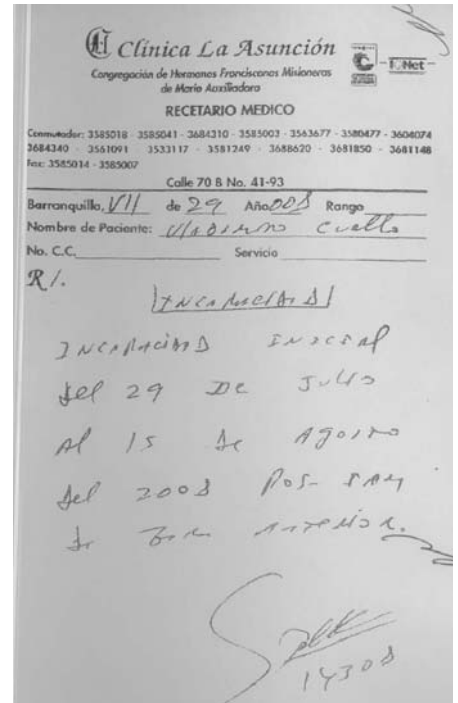 Clínica La Asunción
Congregación de Hermanas Franciscanas Misioneras
de María Auxiliadora
IQNet
RECETARIO MEDICO
Conmutador: 3585018 - 3585041 - 3684310 - 3585003 - 3563677 - 3580477 - 3604074
3684340 - 3561091 - 3533117 - 3581249 - 3688620 - 3681850 - 3681148
Fax: 3585014 - 3585007
Calle 70 B No. 41-93
Barranquilla, VII de 29 Año 008 Rango
Nombre de Paciente: Cuello
No. C.C. Servicio
R/.
INCAPACIDAD
INCAPACIDAD INICIAL
del 29 DE JULIO
Al 15 de AGOSTO
del 2008 POS-
de ANTERIOR.
14308